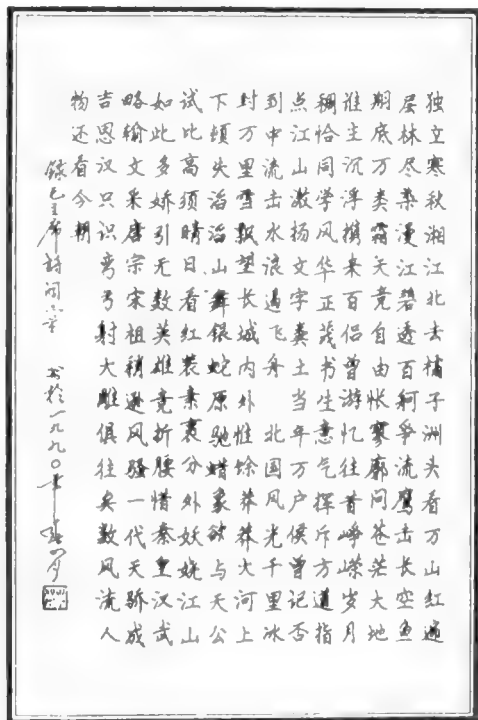 独立寒秋湘江北去橘子洲头看万山红遍
层林尽染漫江碧透百舸争流鹰击长空鱼
翔底万类霜天竞自由怅寥廓问苍茫大地
谁主沉浮携来百侣曾游忆往昔峥嵘岁月
稠恰同学风华正茂书生意气挥斥方遒指
点江山激扬文字粪土当年万户侯曾记否
到中流击水浪遏飞舟 北国风光千里冰
封万里雪飘望长城内外惟馀莽莽大河上
下顿失滔滔山舞银蛇原驰蜡象欲与天公
试比高须晴日看红装素裹分外妖娆江山
如此多娇引无数英雄竞折腰惜秦皇汉武
略输文采唐宗宋祖稍逊风骚一代天骄成
吉思汉只识弯弓射大雕俱往矣数风流人
物还看今朝
录毛主席诗词二章 书於一九九〇年